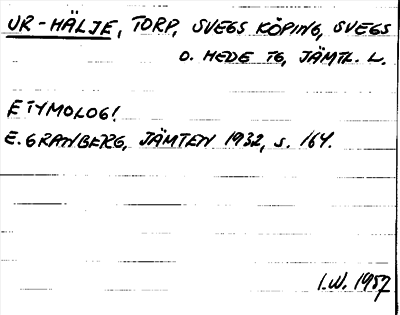 UR-HÄLJE, TORP, SVEGS KÖPING, SVEGS
O. HEDE TG, JÄMTL. L.
ETYMOLOGI
E. GRANBERG, JÄMTEN 1932, s. 164.
I.W. 1957